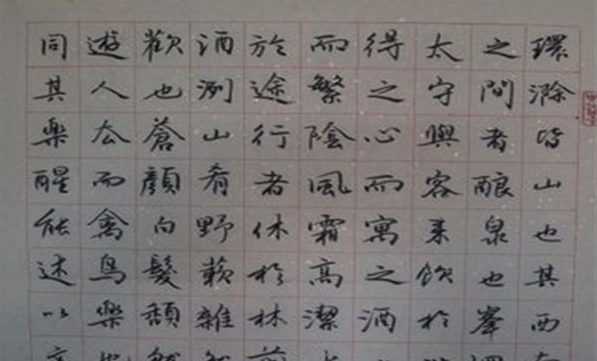 環滁皆山也其西
之間者酿泉也峯
太守與客来飲於
得之心而寓之酒
而繁陰風霜高潔
於途行者休於林
酒洌山肴野蔌雜
歡也蒼顏白髮頹
遊人去而禽鳥樂
同其樂醒能述以